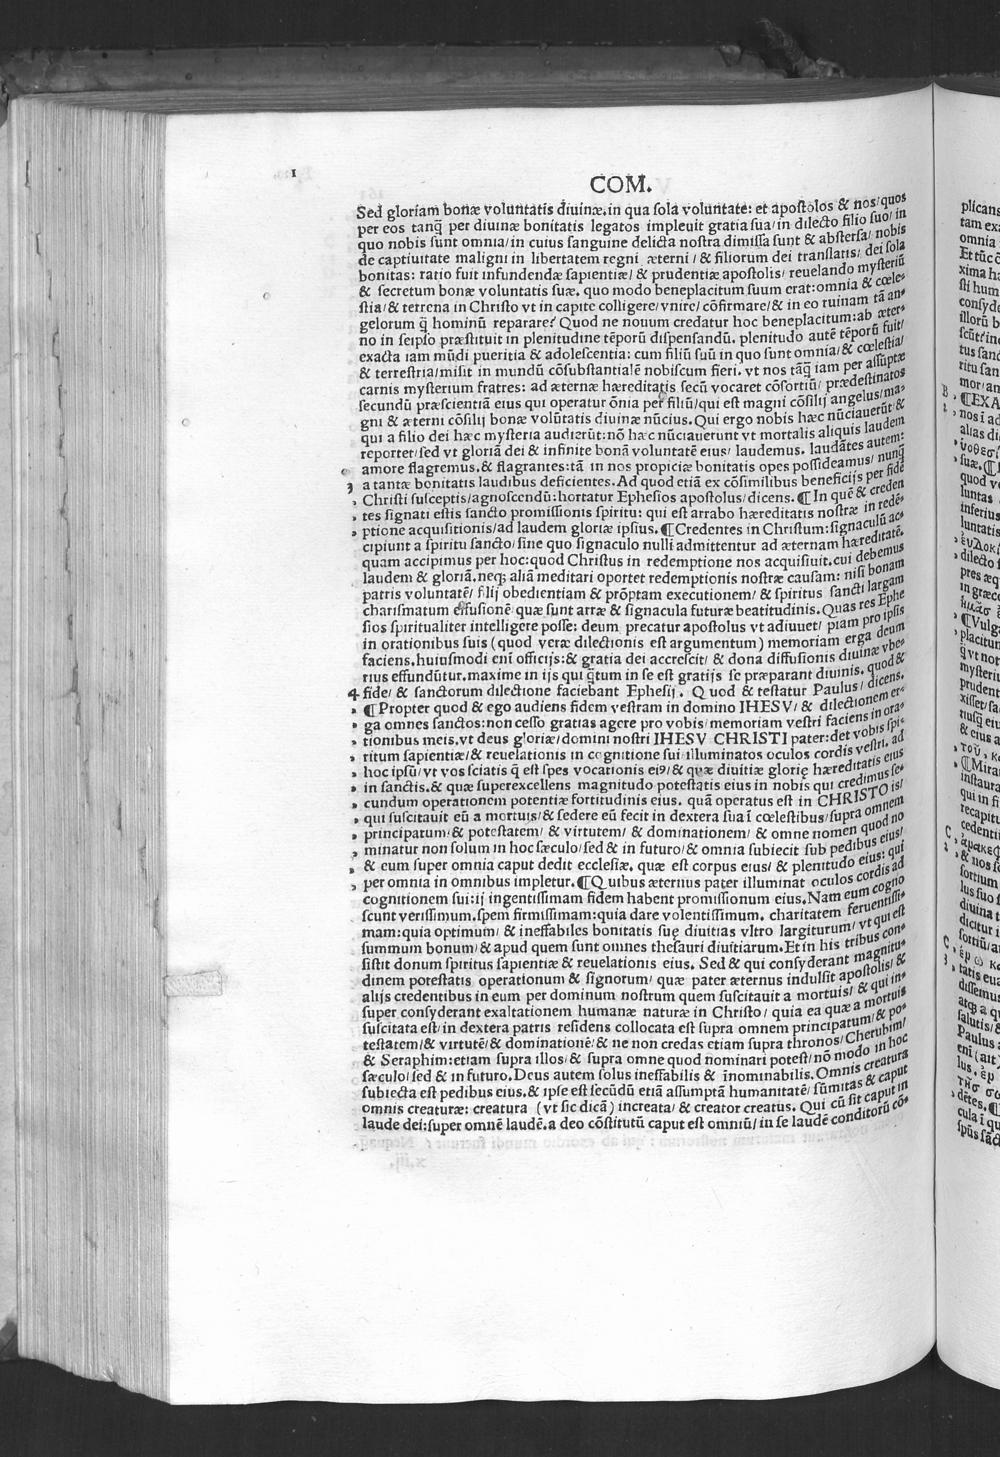 1
COM.
Sed gloriam bonæ voluntatis diuinæ, in qua ſola voluntate: et apoſtolos & nos/quos
per eos tanq̃ per diuinæ bonitatis legatos impleuit gratia ſua/in dilecto filio ſuo/in
quo nobis ſunt omnia/in cuius ſanguine delicta noſtra dimiſſa ſunt & abſterſa/nobis
de captiuitate maligni in libertatem regni æterni/& filiorum dei tranſlatis/dei ſola
bonitas: ratio fuit infundendæ ſapientiæ/& prudentiæ apoſtolis/reuelando myſteriũ
& ſecretum bonæ voluntatis ſuæ. quo modo beneplacitum ſuum erat:omnia & cœle-
ſtia/& terrena in Chriſto vt in capite colligere/vnire/cõfirmare/& in eo ruinam tã an-
gelorum q̃ hominũ reparare? Quod ne nouum credatur hoc beneplacitum:ab æter-
no in ſeipſo præſtituit in plenitudine tẽporũ diſpenſandũ. plenitudo autẽ tẽporũ fuit/
exacta iam mũdi pueritia & adoleſcentia: cum filiũ ſuũ in quo ſunt omnia/& cœleſtia/
& terreſtria/miſit in mundũ cõſubſtantialẽ nobiſcum fieri. vt nos tãq̃ iam per aſſũptæ
carnis myſterium fratres: ad æternæ hæreditatis ſecũ vocaret cõſortiũ/ prædeſtinatos
ſecundũ præſcientiã eius qui operatur õnia per filiũ/qui eſt magni cõſilij angelus/ma-
gni & æterni cõſilij bonæ volũtatis diuinæ nũcius. Qui ergo nobis hæc nũciauerũt &
qui a filio dei hæc myſteria audierũt:nõ hæc nũciauerunt vt mortalis aliquis laudem
reportet/ſed vt gloriã dei & infinite bonã voluntatẽ eius/ laudemus. laudãtes autem:
amore flagremus.& flagrantes:tã in nos propiciæ bonitatis opes poſſideamus/ nunq̃
3 a tantæ bonitatis laudibus deficientes. Ad quod etiã ex cõſimilibus beneficijs per fidẽ
, Chriſti ſuſceptis/agnoſcendũ:hortatur Epheſios apoſtolus/dicens. ¶ In quẽ & creden
, tes ſignati eſtis ſancto promiſſionis ſpiritu: qui eſt arrabo hæreditatis noſtræ in redẽ-
, ptione acquiſitionis/ad laudem gloriæ ipſius. ¶ Credentes in Chriſtum:ſignaculũ ac-
cipiunt a ſpiritu ſancto/ſine quo ſignaculo nulli admittentur ad æternam hæreditatẽ.
quam accipimus per hoc:quod Chriſtus in redemptione nos acquiſiuit.cui debemus
laudem & gloriã.neq; aliã meditari oportet redemptionis noſtræ cauſam: niſi bonam
patris voluntatẽ/ filij obedientiam & prõptam executionem/ & ſpiritus ſancti largam
chariſmatum effuſionẽ quæ ſunt arræ & ſignacula futuræ beatitudinis. Quas res Ephe
ſios ſpiritualiter intelligere poſſe: deum precatur apoſtolus vt adiuuet/ piam pro ipſis
in orationibus ſuis (quod veræ dilectionis eſt argumentum) memoriam erga deum
faciens.huiuſmodi enĩ officijs:& gratia dei accreſcit/ & dona diffuſionis diuinæ vbe-
rius effundũtur.maxime in ijs qui q̃tum in ſe eſt gratijs ſe præparant diuinis. quod &
4 fide/ & ſanctorum dilectione faciebant Epheſij. Quod & teſtatur Paulus/ dicens.
, ¶ Propter quod & ego audiens fidem veſtram in domino IHESV/ & dilectionem er-
, ga omnes ſanctos:non ceſſo gratias agere pro vobis/memoriam veſtri faciens in ora-
, tionibus meis.vt deus gloriæ/domini noſtri IHESV CHRISTI pater:det vobis ſpi-
, ritum ſapientiæ/& reuelationis in cognitione ſui/illuminatos oculos cordis veſtri. ad
, hoc ipſũ/vt vos ſciatis q̃ eſt ſpes vocationis eiꝰ/& quæ diuitiæ glorię hæreditatis eius
, in ſanctis.& quæ ſuperexcellens magnitudo poteſtatis eius in nobis qui credimus ſe-
, cundum operationem potentiæ fortitudinis eius. quã operatus eſt in CHRISTO is/
, qui ſuſcitauit eũ a mortuis/& ſedere eũ fecit in dextera ſua ĩ cœleſtibus/ſupra omnem
, principatum/& poteſtatem/ & virtutem/ & dominationem/ & omne nomen quod no
, minatur non ſolum in hoc ſæculo/ſed & in futuro/& omnia ſubiecit ſub pedibus eius/
, & eum ſuper omnia caput dedit eccleſiæ. quæ eſt corpus eius/ & plenitudo eius: qui
, per omnia in omnibus impletur. ¶ Quibus æternus pater illuminat oculos cordis ad
cognitionem ſui:ij ingentiſſimam fidem habent promiſſionum eius. Nam eum cogno
ſcunt veriſſimum.ſpem firmiſſimam:quia dare volentiſſimum. charitatem feruentiſſi-
mam:quia optimum/ & ineffabiles bonitatis ſuę diuitias vltro largiturum/ vt qui eſt
ſummum bonum/& apud quem ſunt omnes theſauri diuitiarum. Et in his tribus con-
ſiſtit donum ſpiritus ſapientiæ & reuelationis eius. Sed & qui conſyderant magnitu-
dinem poteſtatis operationum & ſignorum/ quæ pater æternus indulſit apoſtolis/ &
alijs credentibus in eum per dominum noſtrum quem ſuſcitauit a mortuis/ & qui in-
ſuper conſyderant exaltationem humanæ naturæ in Chriſto/ quia ea quæ a mortuis
ſuſcitata eſt/in dextera patris reſidens collocata eſt ſupra omnem principatum/& po-
teſtatem/& virtutẽ/& dominationẽ/& ne non credas etiam ſupra thronos/Cherubim/
& Seraphim:etiam ſupra illos/& ſupra omne quod nominari poteſt/nõ modo in hoc
ſæculo/ſed & in futuro. Deus autem ſolus ineffabilis & ĩnominabilis. Omnis creatura
ſubiecta eſt pedibus eius.& ipſe eſt ſecũdũ etiã aſſumptã humanitatẽ/ ſũmitas & caput
omnis creaturæ: creatura (vt ſic dicã) increata/ & creator creatus. Qui cũ ſit caput in
laude dei:ſuper omnẽ laudẽ.a deo cõſtitutũ caput eſt omniũ/ in ſe laudẽ conditorũ cõ-